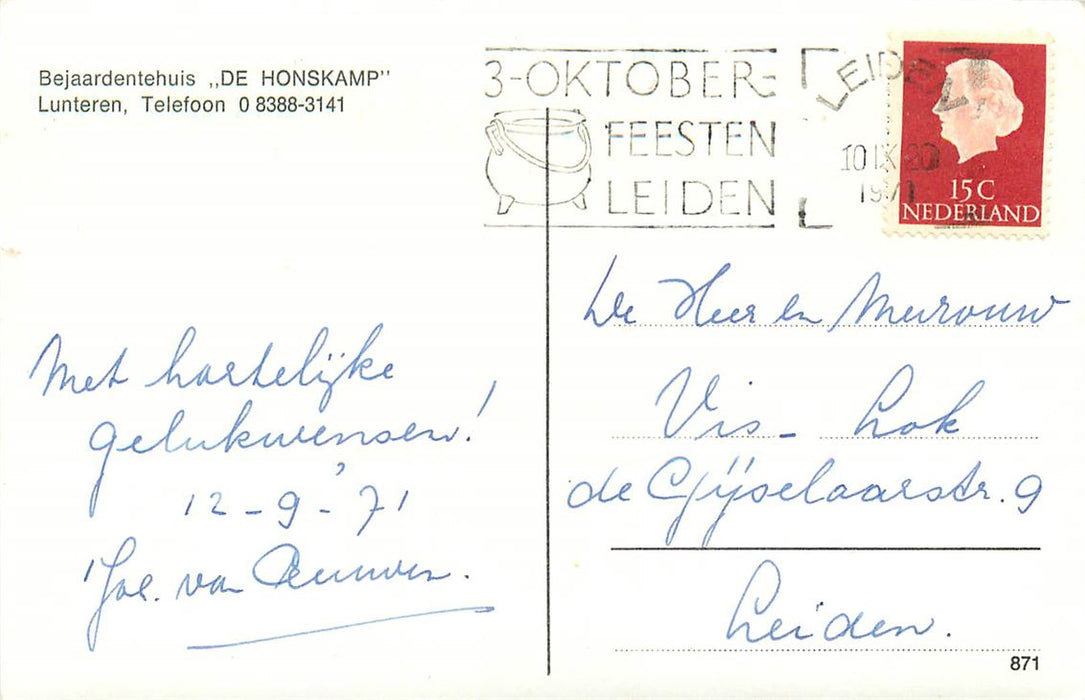 Bejaardentehuis „DE HONSKAMP"
Lunteren, Telefoon 0 8388-3141
3-OKTOBER-
FEESTEN
LEIDEN
LEIDEN
10 IX 20
1971
15 C
NEDERLAND
Met hartelijke
gelukwensen!
12-9-'71
Joh. van
De Heer en Mevrouw
Vis-Lok
de Gijselaarstr. 9
Leiden.
871